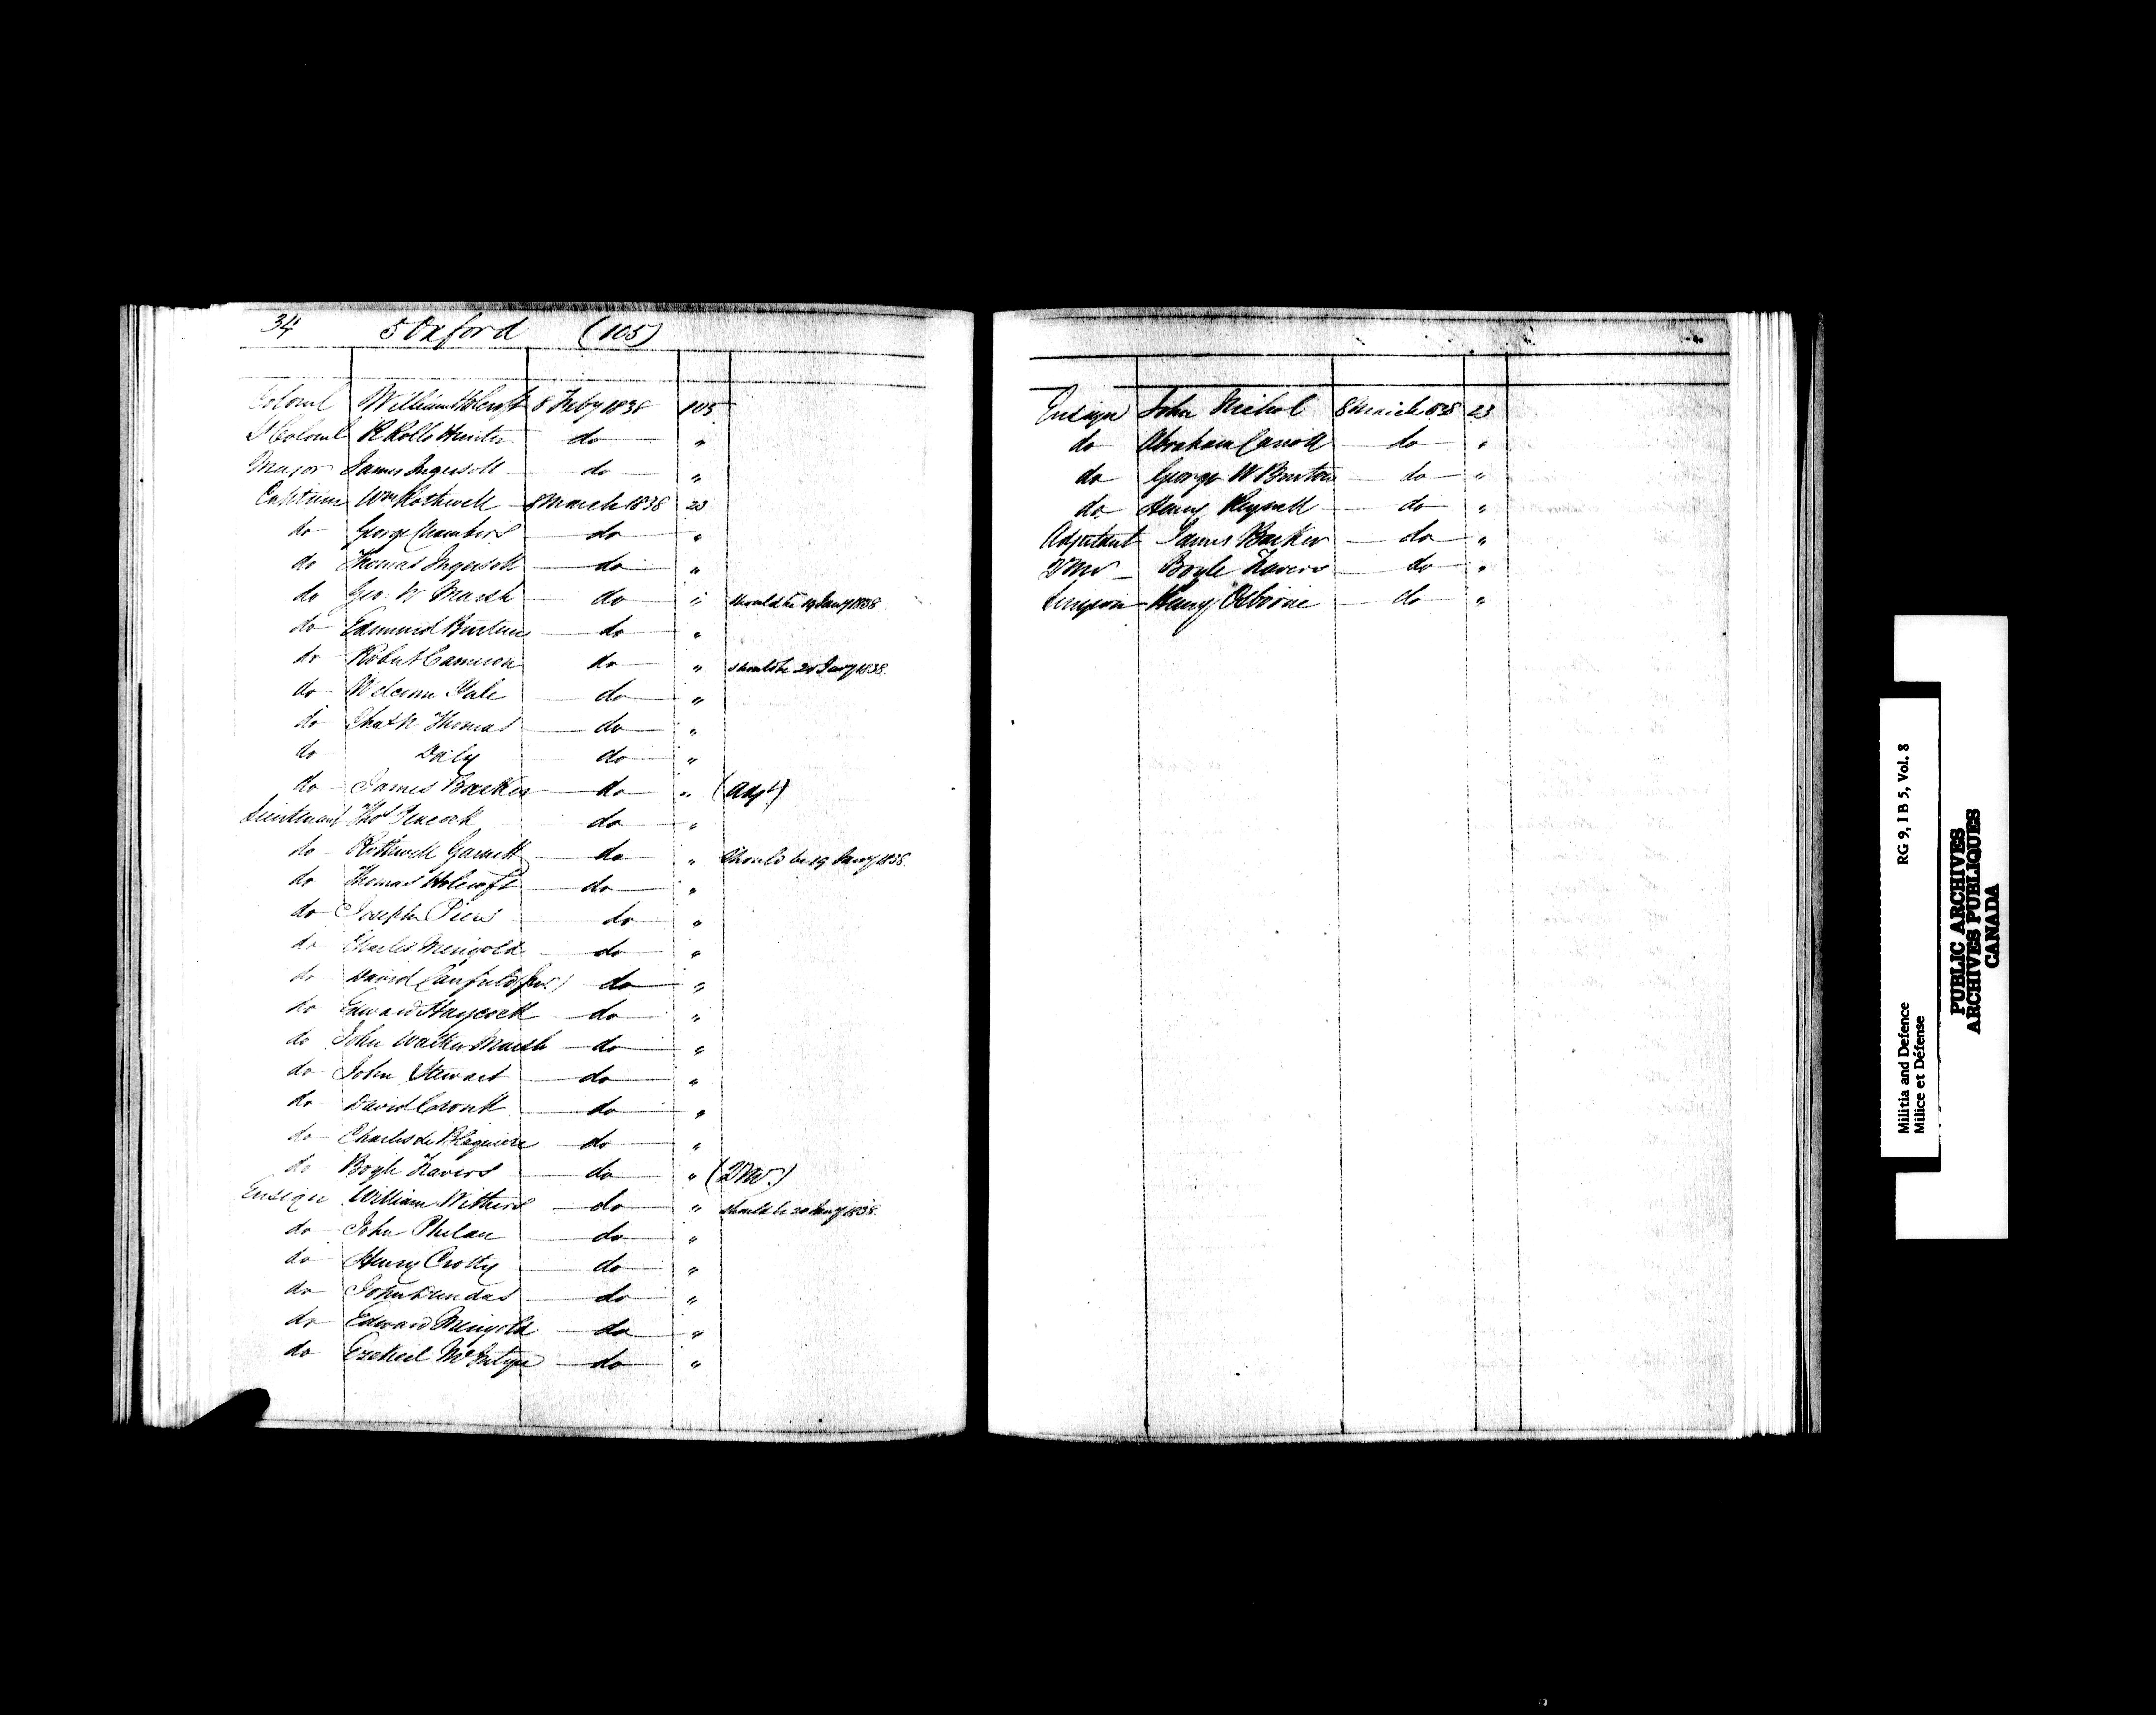 34 5 Oxford (105)
Colonel William Holcroft 8 Feby 1838 105
Lt Colonel R Rollo Hunter do "
Major James Ingersoll do "
Captain Wm Rothwell 8 March 1838 23
do George Chambers do "
do Thomas Ingersoll do "
do Geo: W Marsh do " should be 19 Jany 1838
do Edmund Burton do "
do Robert Cameron do " should be 20 Jany 1838
do Welcome Yale do "
do Thomas do "
do Daly do "
do James Barker do " (Adjt)
Lieutenant Thos Peacock do "
do Rothwell Garnett do " should be 19 Jany 1838
do Thomas Holcroft do "
do Joseph Piers do "
do Charles Merigold do "
do David Canfield (Junr) do "
do Edward Haycock do "
do John Walker Marsh do "
do John Stewart do "
do David Cronk do "
do Charles de Blaquiere do "
do Boyle Travers do "
Ensign William Withers do " should be 20 Jany 1838
do John Phelan do "
do Henry Crotty do "
do John Dundas do "
do Edward Merigold do "
do Ezekiel McIntyre do "
Ensign John Nichol 8 March 1838 23
do Abraham Carroll do "
do George W Burton do "
do Henry Reynell do "
Adjutant James Barker do "
Boyle Travers do "
Surgeon Henry Osborne do "
Militia and Defence RG 9, I B 5, Vol. 8
Milice et Défense
PUBLIC ARCHIVES
ARCHIVES PUBLIQUES
CANADA